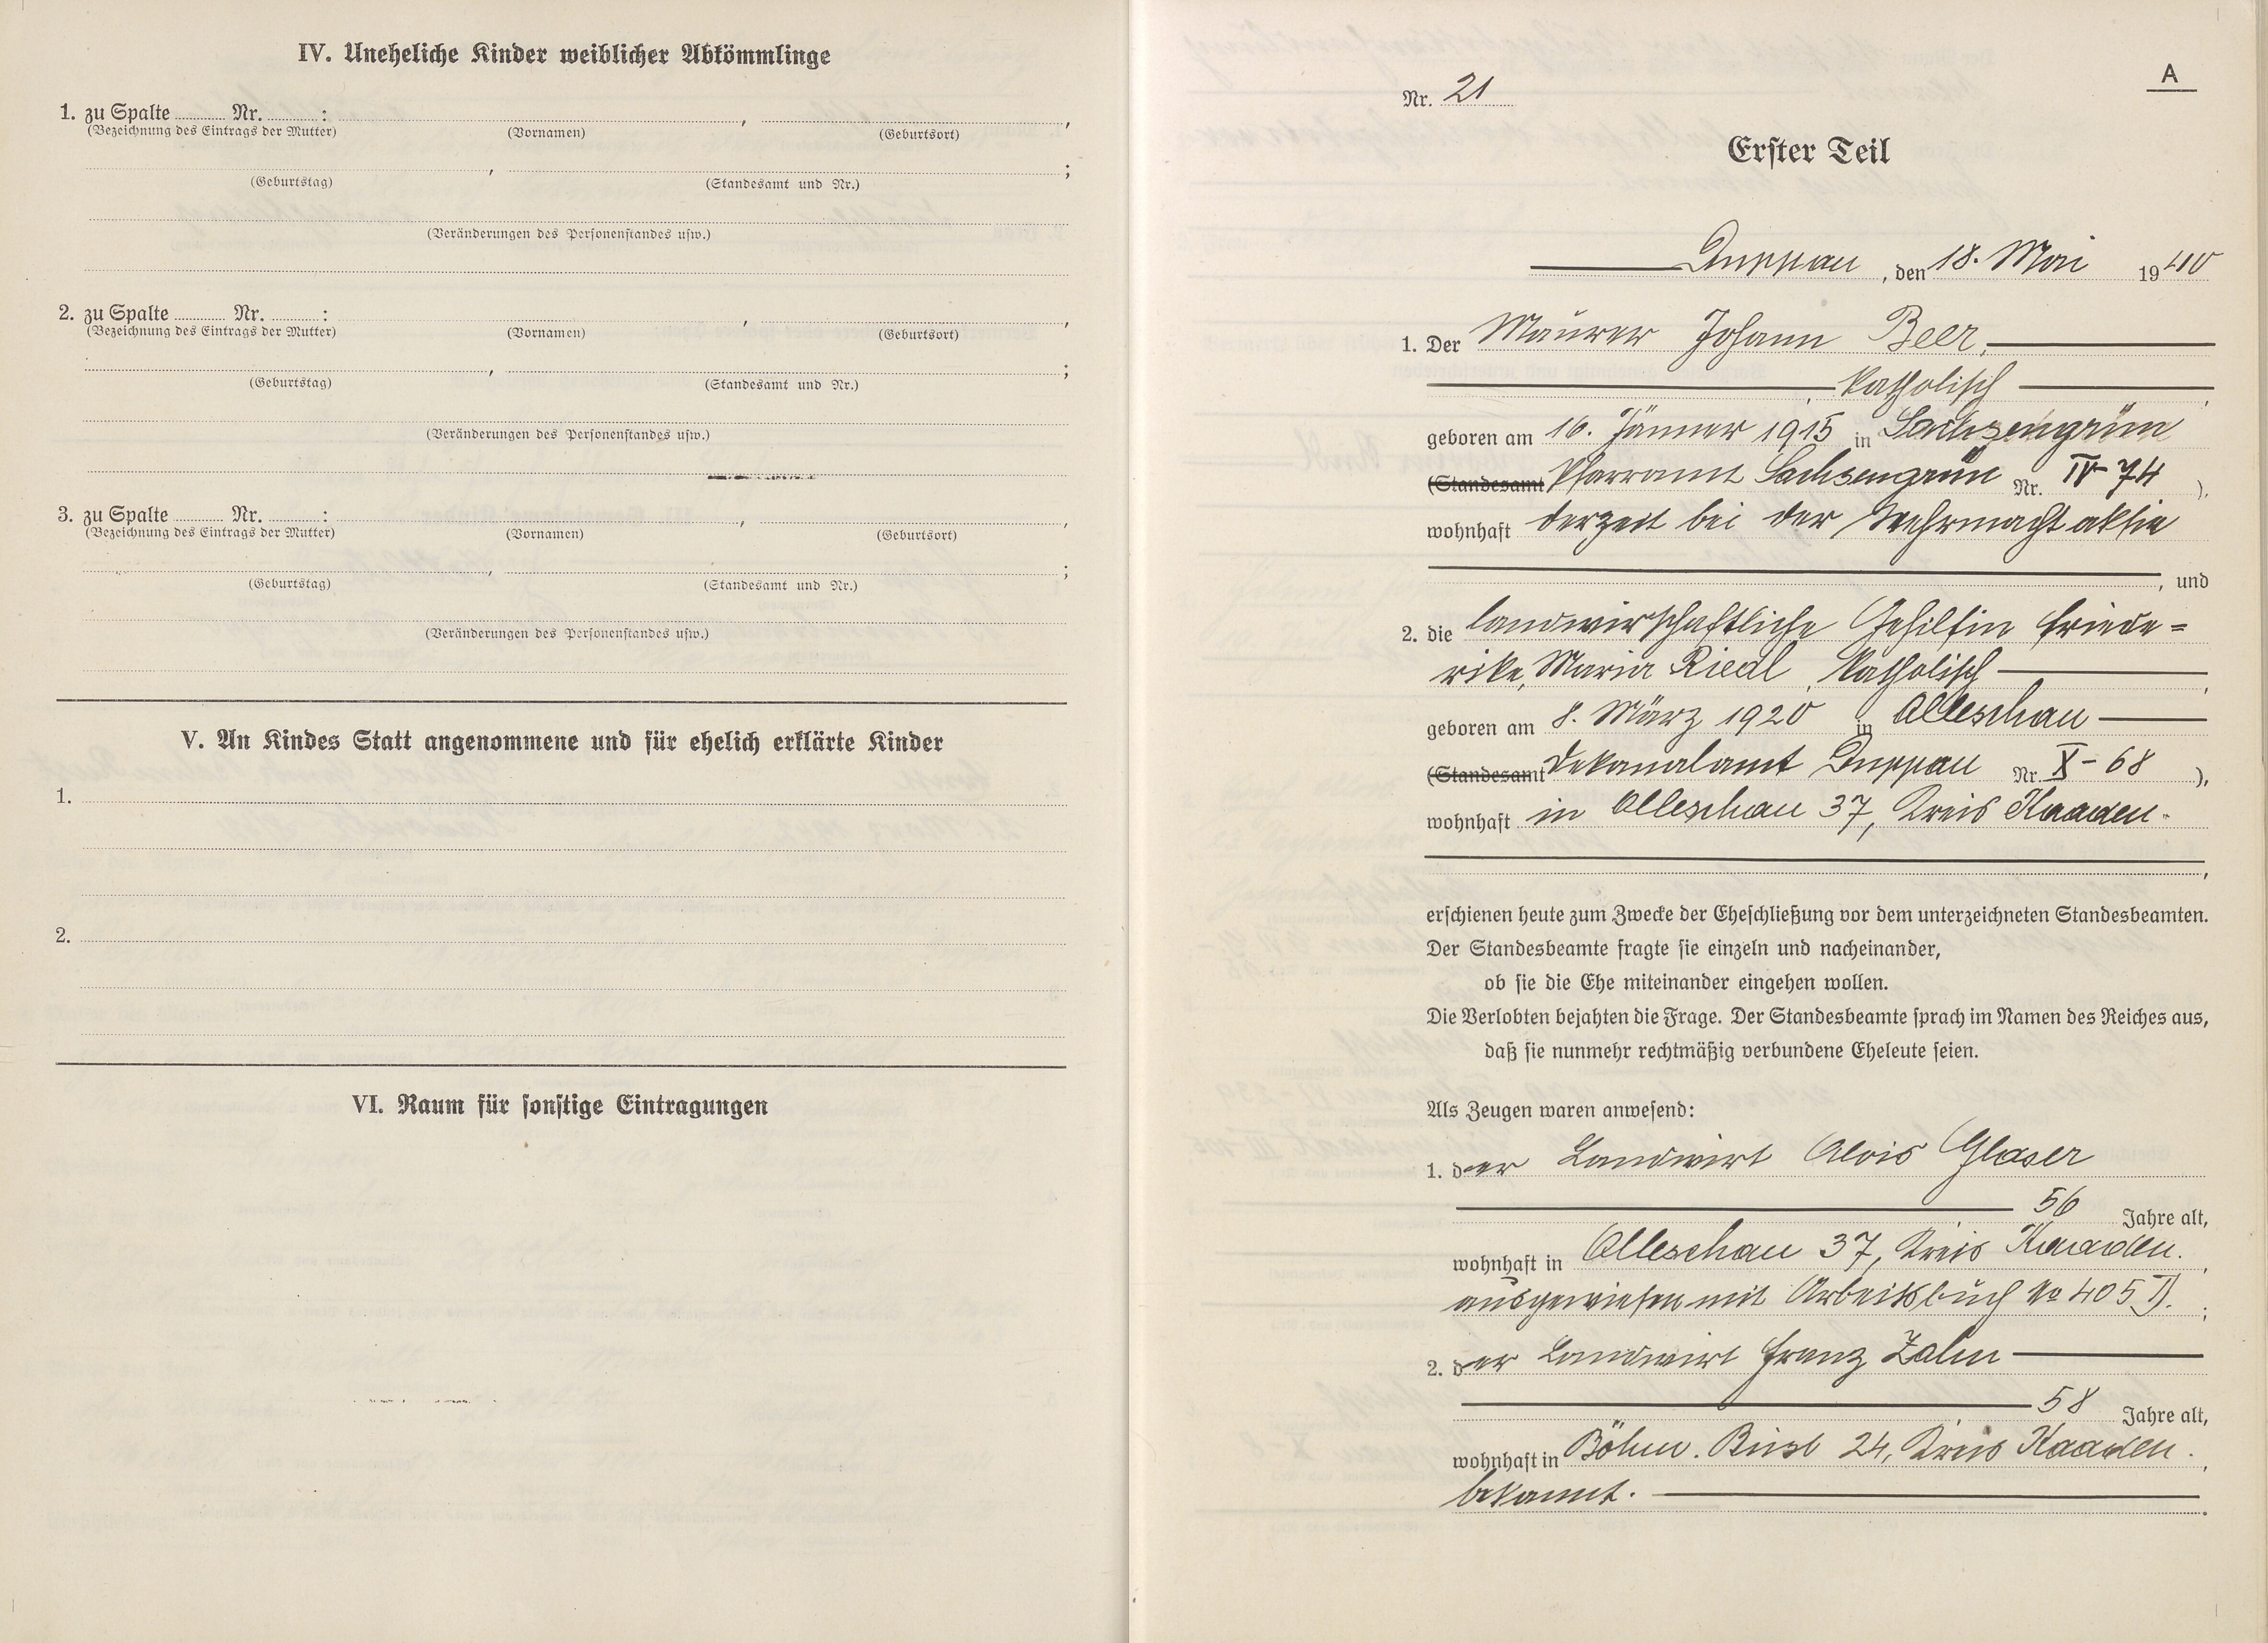 IV. Uneheliche Kinder weiblicher Abkömmlinge
1. zu Spalte ........ Nr. ........ : , ,
(Bezeichnung des Eintrags der Mutter) (Vornamen) (Geburtsort)
, ;
(Geburtstag) (Standesamt und Nr.)
(Veränderungen des Personenstandes usw.)
2. zu Spalte ........ Nr. ........ : , ,
(Bezeichnung des Eintrags der Mutter) (Vornamen) (Geburtsort)
, ;
(Geburtstag) (Standesamt und Nr.)
(Veränderungen des Personenstandes usw.)
3. zu Spalte ........ Nr. ........ : , ,
(Bezeichnung des Eintrags der Mutter) (Vornamen) (Geburtsort)
, ;
(Geburtstag) (Standesamt und Nr.)
(Veränderungen des Personenstandes usw.)
V. An Kindes Statt angenommene und für ehelich erklärte Kinder
1.
2.
VI. Raum für sonstige Eintragungen
A
Nr. 21
Erster Teil
Duppau, den 18. Mai 1940
1. Der Maurer Johann Beer,
katholisch
geboren am 16. Jänner 1915 in Sachsengrün
(Standesamt Pfarramt Sachsengrün Nr. IV-74),
wohnhaft derzeit bei der Wehrmacht aktiv
, und
2. die landwirschaftliche Gehilfin Friede=
rike, Maria Riedl, katholisch
geboren am 8. März 1920 in Olleschau
(Standesamt Dekanalamt Duppau Nr. X-68),
wohnhaft in Olleschau 37, Kreis Kaaden.
erschienen heute zum Zwecke der Eheschließung vor dem unterzeichneten Standesbeamten.
Der Standesbeamte fragte sie einzeln und nacheinander,
ob sie die Ehe miteinander eingehen wollen.
Die Verlobten bejahten die Frage. Der Standesbeamte sprach im Namen des Reiches aus,
daß sie nunmehr rechtmäßig verbundene Eheleute seien.
Als Zeugen waren anwesend:
1. der Landwirt Alois Glaser
56 Jahre alt,
wohnhaft in Olleschau 37, Kreis Kaaden.
ausgewiesen mit Arbeitsbuch No 405
2. der Landwirt Franz Zalm
58 Jahre alt,
wohnhaft in Böhm. Rust 24, Kreis Kaaden.
bekannt.